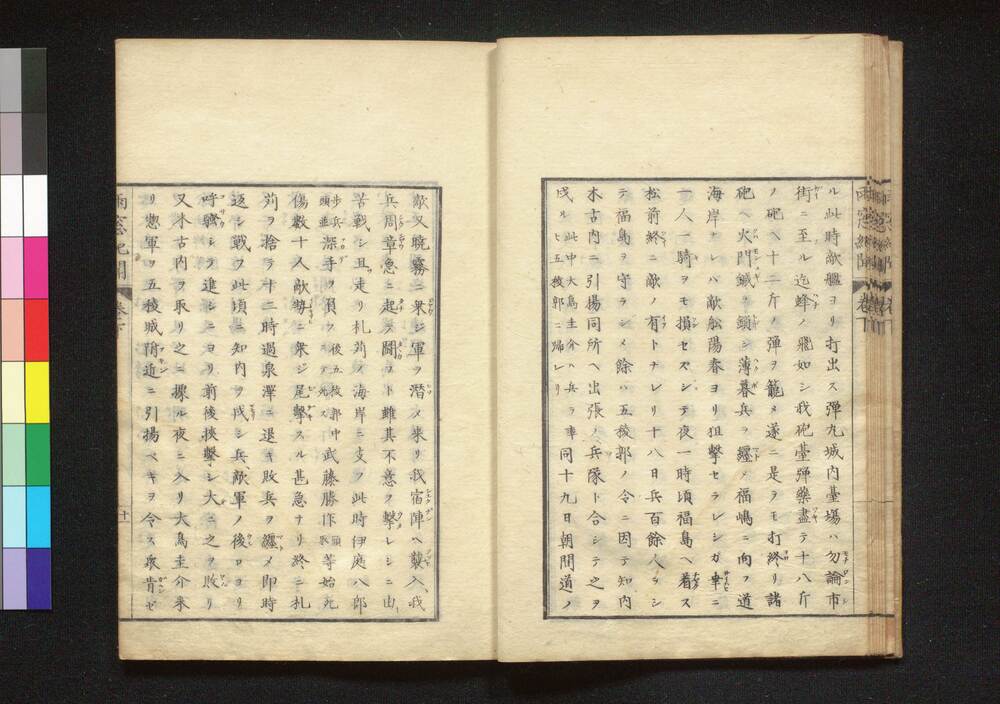 ル此時敵艦ヨリ打出ス彈丸城内臺場ハ勿論市
街ニ至ル迄蜂ノ飛如シ我砲臺彈藥盡テ十八斤
ノ砲ヘ十二斤ノ彈ヲ籠メ遂ニ是ヲモ打終リ諸
砲ヘ火門鍼ヲ鎖シ薄暮兵ヲ纒メ福嶋ニ向フ道
海岸ナレバ敵舩陽春ヨリ狙擊セラレシガ幸ニ
一人一騎ヲモ損セズシテ夜一時頃福島ヘ着ス
松前終ニ敵ノ有トナレリ十八日兵百餘人ヲシ
テ福島ヲ守ラシメ餘ハ五稜郭ノ令ニ因テ知内
木古内ニ引揚同所ヘ出張ノ兵隊ト合シテ之ヲ
戍ル此中大鳥圭介ハ兵ヲ率ヒ五稜郭ニ歸レリ同十九日朝間道ノ
敵又曉霧ニ衆ジ軍ヲ潜メ来リ我宿陣ヘ襲入、我
兵周章急ニ起テ鬪フト雖其不意ヲ擊レシニ由
苦戰シ且走リ札苅ノ海岸ニ支フ此時伊庭八郎
歩兵頭並深手ヲ負フ後五稜郭中ニテ死ス武藤勝作頭取等始死
傷數十人敵勢ニ衆ジ尾擊スル甚急ナリ終ニ札
苅ヲ捨ラ十二時過泉澤ニ退キ敗兵ヲ纒メ即時
返シ戰フ此頃ニ知内ヲ戍シ兵、敵軍ノ後ロヨリ
呼譟シテ進シニヨリ前後挾擊シ大ニ之ヲ敗リ
又木古内ヲ取リ之ニ據ル夜ニ入リ大鳥圭介来
リ惣軍ヲ五稜城隋近ニ引揚ベキヲ令ス衆肯ゼ
雨窓紀聞
卷下
十